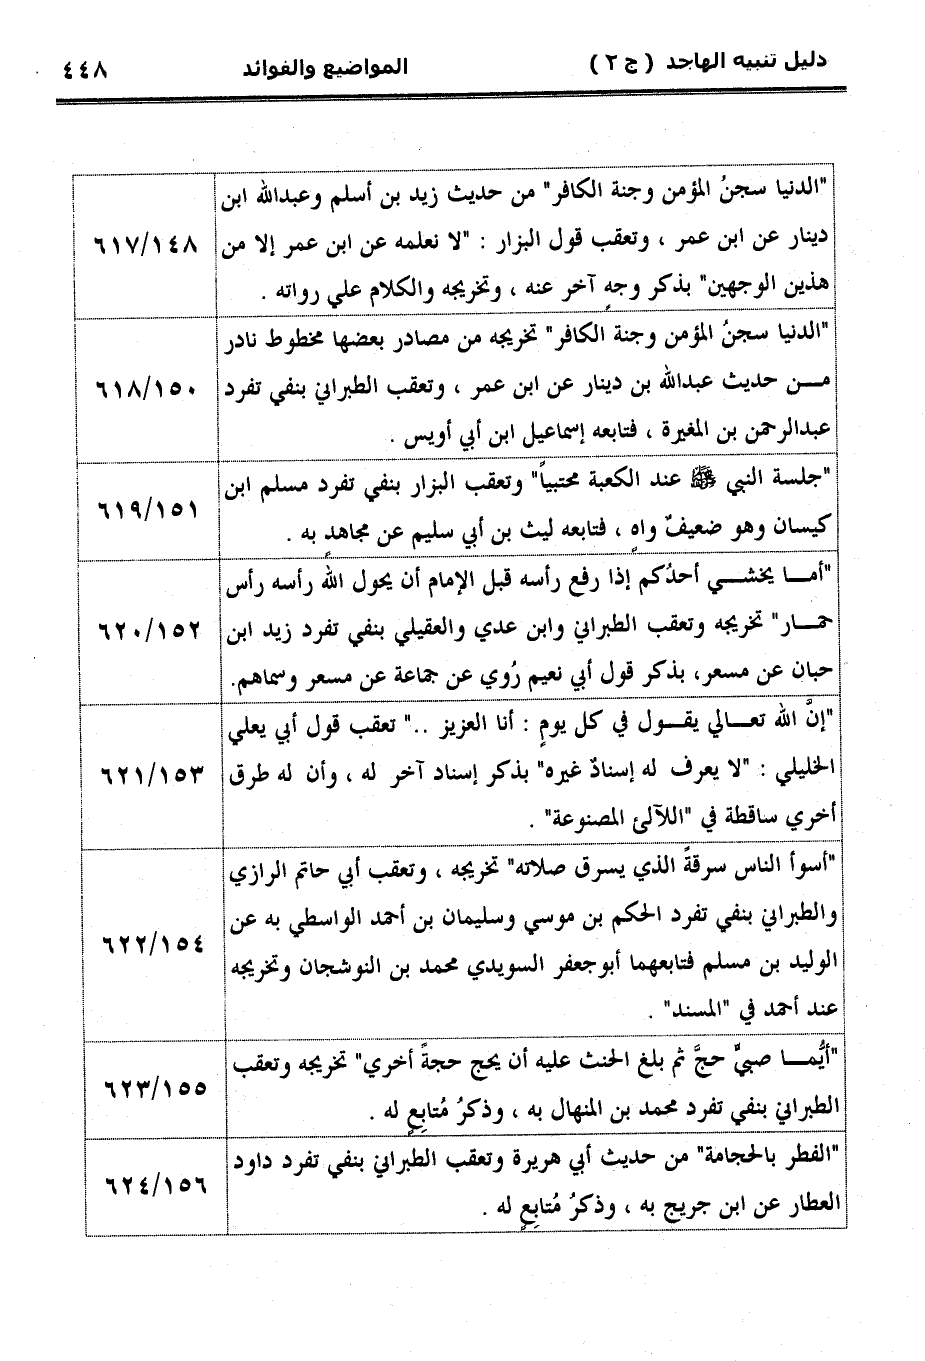 دليل تنبيه الهاجد ( ج ٢ ) المواضيع والفوائد ٤٤٨
"الدنيا سجنُ المؤمن وجنة الكافر" من حديث زيد بن أسلم وعبدالله ابن
دينار عن ابن عمر ، وتعقب قول البزار : "لا نعلمه عن ابن عمر إلا من
هذين الوجهين" بذكر وجهٍ آخر عنه ، وتخريجه والكلام علي رواته .
٦١٧/١٤٨
"الدنيا سجنُ المؤمن وجنة الكافر" تخريجه من مصادر بعضها مخطوط نادر
مــن حديث عبدالله بن دينار عن ابن عمر ، وتعقب الطبراني بنفي تفرد
عبدالرحمن بن المغيرة ، فتابعه إسماعيل ابن أبي أويس .
٦١٨/١٥٠
"جلسة النبي ﷺ عند الكعبة محتبياً" وتعقب البزار بنفي تفرد مسلم ابن
كيسان وهو ضعيفٌ واهٍ ، فتابعه ليث بن أبي سليم عن مجاهدٍ به .
٦١٩/١٥١
"أمــا يخشــي أحدُكم إذا رفع رأسه قبل الإمام أن يحول الله رأسه رأس
حمــار" تخريجه وتعقب الطبراني وابن عدي والعقيلي بنفي تفرد زيد ابن
حبان عن مسعر، بذكر قول أبي نعيم رُوي عن جماعة عن مسعر وسماهم.
٦٢٠/١٥٢
"إنَّ الله تعــالي يقــول في كل يومٍ : أنا العزيز .." تعقب قول أبي يعلي
الخليلي : "لا يعرف له إسنادٌ غيره" بذكر إسناد آخر له ، وأن له طرق
أخري ساقطة في "اللآلئ المصنوعة" .
٦٢١/١٥٣
"أسوأ الناس سرقةً الذي يسرق صلاته" تخريجه ، وتعقب أبي حاتم الرازي
والطبراني بنفي تفرد الحكم بن موسي وسليمان بن أحمد الواسطي به عن
الوليد بن مسلم فتابعهما أبوجعفر السويدي محمد بن النوشجان وتخريجه
عند أحمد في "المسند" .
٦٢٢/١٥٤
"أيُّمــا صبيٍّ حجَّ ثم بلغ الحنث عليه أن يحج حجةً أخري" تخريجه وتعقب
الطبراني بنفي تفرد محمد بن المنهال به ، وذكرُ مُتابعٍ له .
٦٢٣/١٥٥
"الفطر بالحجامة" من حديث أبي هريرة وتعقب الطبراني بنفي تفرد داود
العطار عن ابن جريج به ، وذكرُ مُتابِعٍ له .
٦٢٤/١٥٦